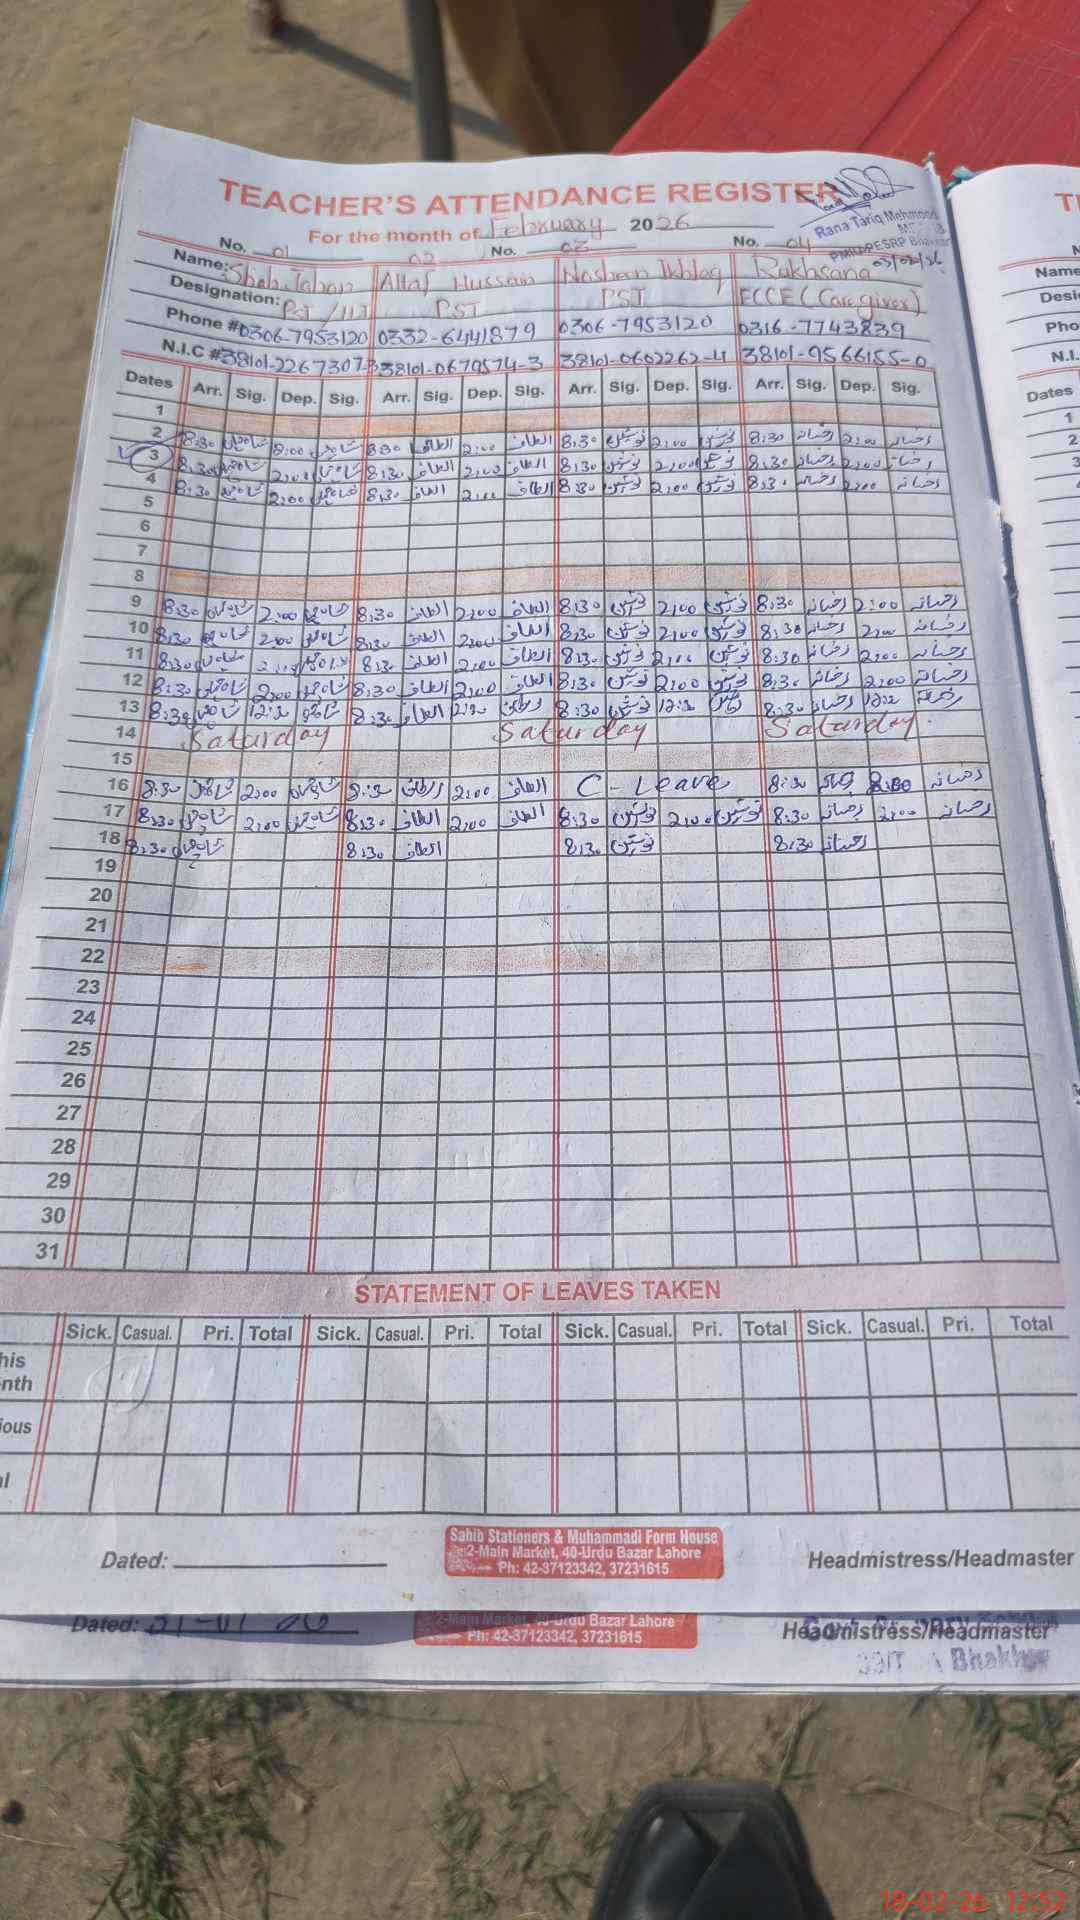 TEACHER'S ATTENDANCE REGISTER
For the month of February 2026
Rana Tariq Mehmood
PMIU-PESRP Bhakkar
03/02/26
No. 01 02 No. 03 No. 04
Name: Shah Jahan Altaf Hussain Nosheen Ikhlaq Rukhsana
Designation: PST PST PST ECCE (Caregiver)
Phone # 0306-7953120 0332-6441879 0306-7953120 0316-7743839
N.I.C # 38101-2267307-3 38101-0679574-3 38101-0602262-4 38101-9566155-0
Dates Arr. Sig. Dep. Sig. Arr. Sig. Dep. Sig. Arr. Sig. Dep. Sig. Arr. Sig. Dep. Sig.
1
2 8:30 2:00 8:30 الطاف 2:00 الطاف 8:30 نوشین 2:00 نوشین 8:30 رخسانہ 2:00 رخسانہ
3 8:30 2:00 8:30 الطاف 2:00 الطاف 8:30 نوشین 2:00 نوشین 8:30 رخسانہ 2:00 رخسانہ
4 8:30 2:00 8:30 الطاف 2:00 الطاف 8:30 نوشین 2:00 نوشین 8:30 رخسانہ 2:00 رخسانہ
5
6
7
8
9 8:30 2:00 8:30 الطاف 2:00 الطاف 8:30 نوشین 2:00 نوشین 8:30 رخسانہ 2:00 رخسانہ
10 8:30 2:00 8:30 الطاف 2:00 الطاف 8:30 نوشین 2:00 نوشین 8:30 رخسانہ 2:00 رخسانہ
11 8:30 2:00 8:30 الطاف 2:00 الطاف 8:30 نوشین 2:00 نوشین 8:30 رخسانہ 2:00 رخسانہ
12 8:30 2:00 8:30 الطاف 2:00 الطاف 8:30 نوشین 2:00 نوشین 8:30 رخسانہ 2:00 رخسانہ
13 8:30 8:30 الطاف الطاف 8:30 نوشین نوشین 8:30 رخسانہ رخسانہ
14 Saturday Saturday Saturday
15
16 8:30 2:00 8:30 الطاف 2:00 الطاف C-Leave 8:30 رخسانہ رخسانہ
17 8:30 2:00 8:30 الطاف 2:00 الطاف 8:30 نوشین 2:00 نوشین 8:30 رخسانہ 2:00 رخسانہ
18 8:30 8:30 الطاف 8:30 نوشین 8:30 رخسانہ
19
20
21
22
23
24
25
26
27
28
29
30
31
STATEMENT OF LEAVES TAKEN
Sick. Casual. Pri. Total Sick. Casual. Pri. Total Sick. Casual. Pri. Total Sick. Casual. Pri. Total
his
nth
ious
al
Sahib Stationers & Muhammadi Form House
2-Main Market, 40-Urdu Bazar Lahore
Ph: 42-37123342, 37231615
Dated:
Headmistress/Headmaster
2-Main Market, 40-Urdu Bazar Lahore
Ph: 42-37123342, 37231615
Dated:
Headmistress/Headmaster
Bhakkar
Name
Desi
Pho
N.I.
Dates
1
2
3
4
18-02-26 12:52